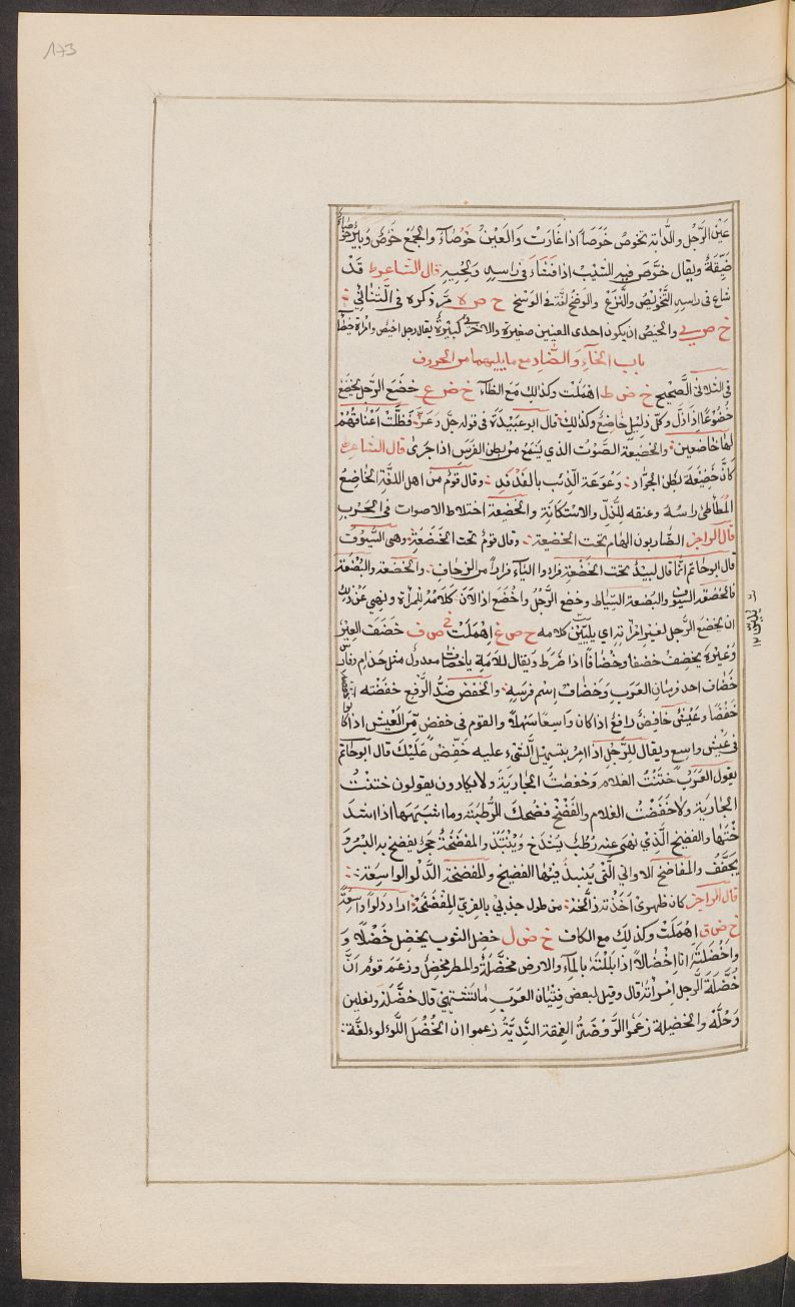 173
عَيْن الرَّجُل والدَّابة تخوصُ خَوَصَاً اذا غَارَت والعَيْنُ خَوْصَاءُ والجمْع خُوْصٌ وَبِئرٌ خوصاء
ضَيّقَةٌ ويقال خوَّصَ فيه الشيْبُ اذا فشَاءَ فى راسه ولحيته قال الشاعر قَدْ
شاع فى راسه التَّخوْيصُ والنَّزعْ والوخْ لغَة فى الوسَخ خ ص ه مَرّ ذكره فى الثنائي
خ ص ي والخيَصُ ان يكون احدى العينين صغيرة والاخرى كبيرةً يقال رجل اخيَص وامراة خيصا
باب الخآءِ والضَّادِ مع ما يليهما من الحروف
فى الثلاثى الصَّحيْح خ ض ط اهملت وكذلك مَعَ الظاء خ ض ع خضَع الرّجل يخضَع
خُضُوعًا اذا ذلَّ وكلّ ذليل خاضِعٌ وكذلك قال ابو عبَيْدة فى قوله جلّ وعَزّ فظَلّت اَعْنَاقُهُمْ
لها خاضعين والخضيْعَة الصَّوْت الذي يُسْمَع من بطن الفرَس اذا جَرى قال الشاعر
كَانَّ خَضِيْعَة بَطْن الجوَاد وَعْوَعَة الذّئب بالفَدْفَد وقال قومٌ من اهل اللغة الخاضِعُ
المُطأطئ راسَهُ وعنقه للذّلّ والاستكَانَة والخَضيعة اختلاط الاصوات فى الحروب
قال الراجز الضّاربون الهَام تحت الخضيعة وقال قومٌ تحت الخَضَعَة وهى السُّيوُف
قال ابو حَاتم انّما قال لبيْدُ تحت الخَضَعةِ فزادوا اليَآءَ فراراً من الزحَافِ والخَضَعة والبُضعَة
فالخضعَة السُيوْف والبَضعة السّيَاط وخضع الرّجُلُ واخْضَع اذا الاَنَ كلامَهُ للمرْأة ونهي عَنْ ذلك
ان يخضع الرَّجل لغيْر امْرأته اي يليّنْ كلامه خ ض غ اهمَلَتْ خ ض ف خضَفَ العِيْر
وغيْرهُ يخضِفُ خضفا وخُضَافًا اذا ضَرَط ويقال للاَمَة ياخضَاف معدول مثل حذام وفارس
خضاف احد فرسَان العَرَب وخضَافِ اِسْم فرسه والخفض ضدّ الرَّفع خفضْته اخفضه
خفْضًا وعَيْشٌ خافِضٌ رافغٌ اذا كان واسِعًا سَهْلاً والقوم فى خفض من العَيْش اذا كانوا
فى عيْش واسع ويقال للرَّجل اذا امِرَ بتسهيل الشيْءِ عليه خَفِّضْ عَلَيْكَ قال ابو حَاتم
يقول العَرَبُ خَتَنْتُ الغلام وَخفضْتُ الجَارِيَةَ ولا يكادون يقولون ختنْت
الجاريَة ولا خَفَضْت الغلام والفَضْخ فضخك للرّطبَة وما اشبَهَهَا اذا اشدَ
خْتَها والفضيخ الَّذي نهي عنه رُطبٌ يُشدَخ ويُنْتَبَذُ والمفضخة حَجرٌ يفضخ به البُسْرُ وَ
يجفّفُ والمفاضخ الاواني الّتي يُنبذ فيْها الفضيخ والمفضخة الدّلو الواسِعَة
قال الراجز كان ظهرى اَخذَتْه زُلَّخهْ من طول جذبي بالفريّ المفضخَةْ اراد دلواً واسِعَةً
خ ض ق اهْمَلَتْ وكذلك مع الكاف خ ض ل خضل الثوب يخضل خضْلاً وَ
واخضلتُهُ انا اخضَالاً اذا بلَلْتَهُ بالمآءِ والارض مخضَلَةٌ والمطر مخضِلٌ وزعَمَ قومٌ اَنَّ
خُضُلّةَ الرَّجل امْرأتهُ قال وقيل لبعض فتيَان العَرَب ما تَشتهِيْ قال خضُلّة ونعلين
وَحُلّة والخضيلة زعَموا الرَّوْضَةُ الغمقة النَّديّةُ زعموا ان الخَضْل اللُّؤْلوء لغَة